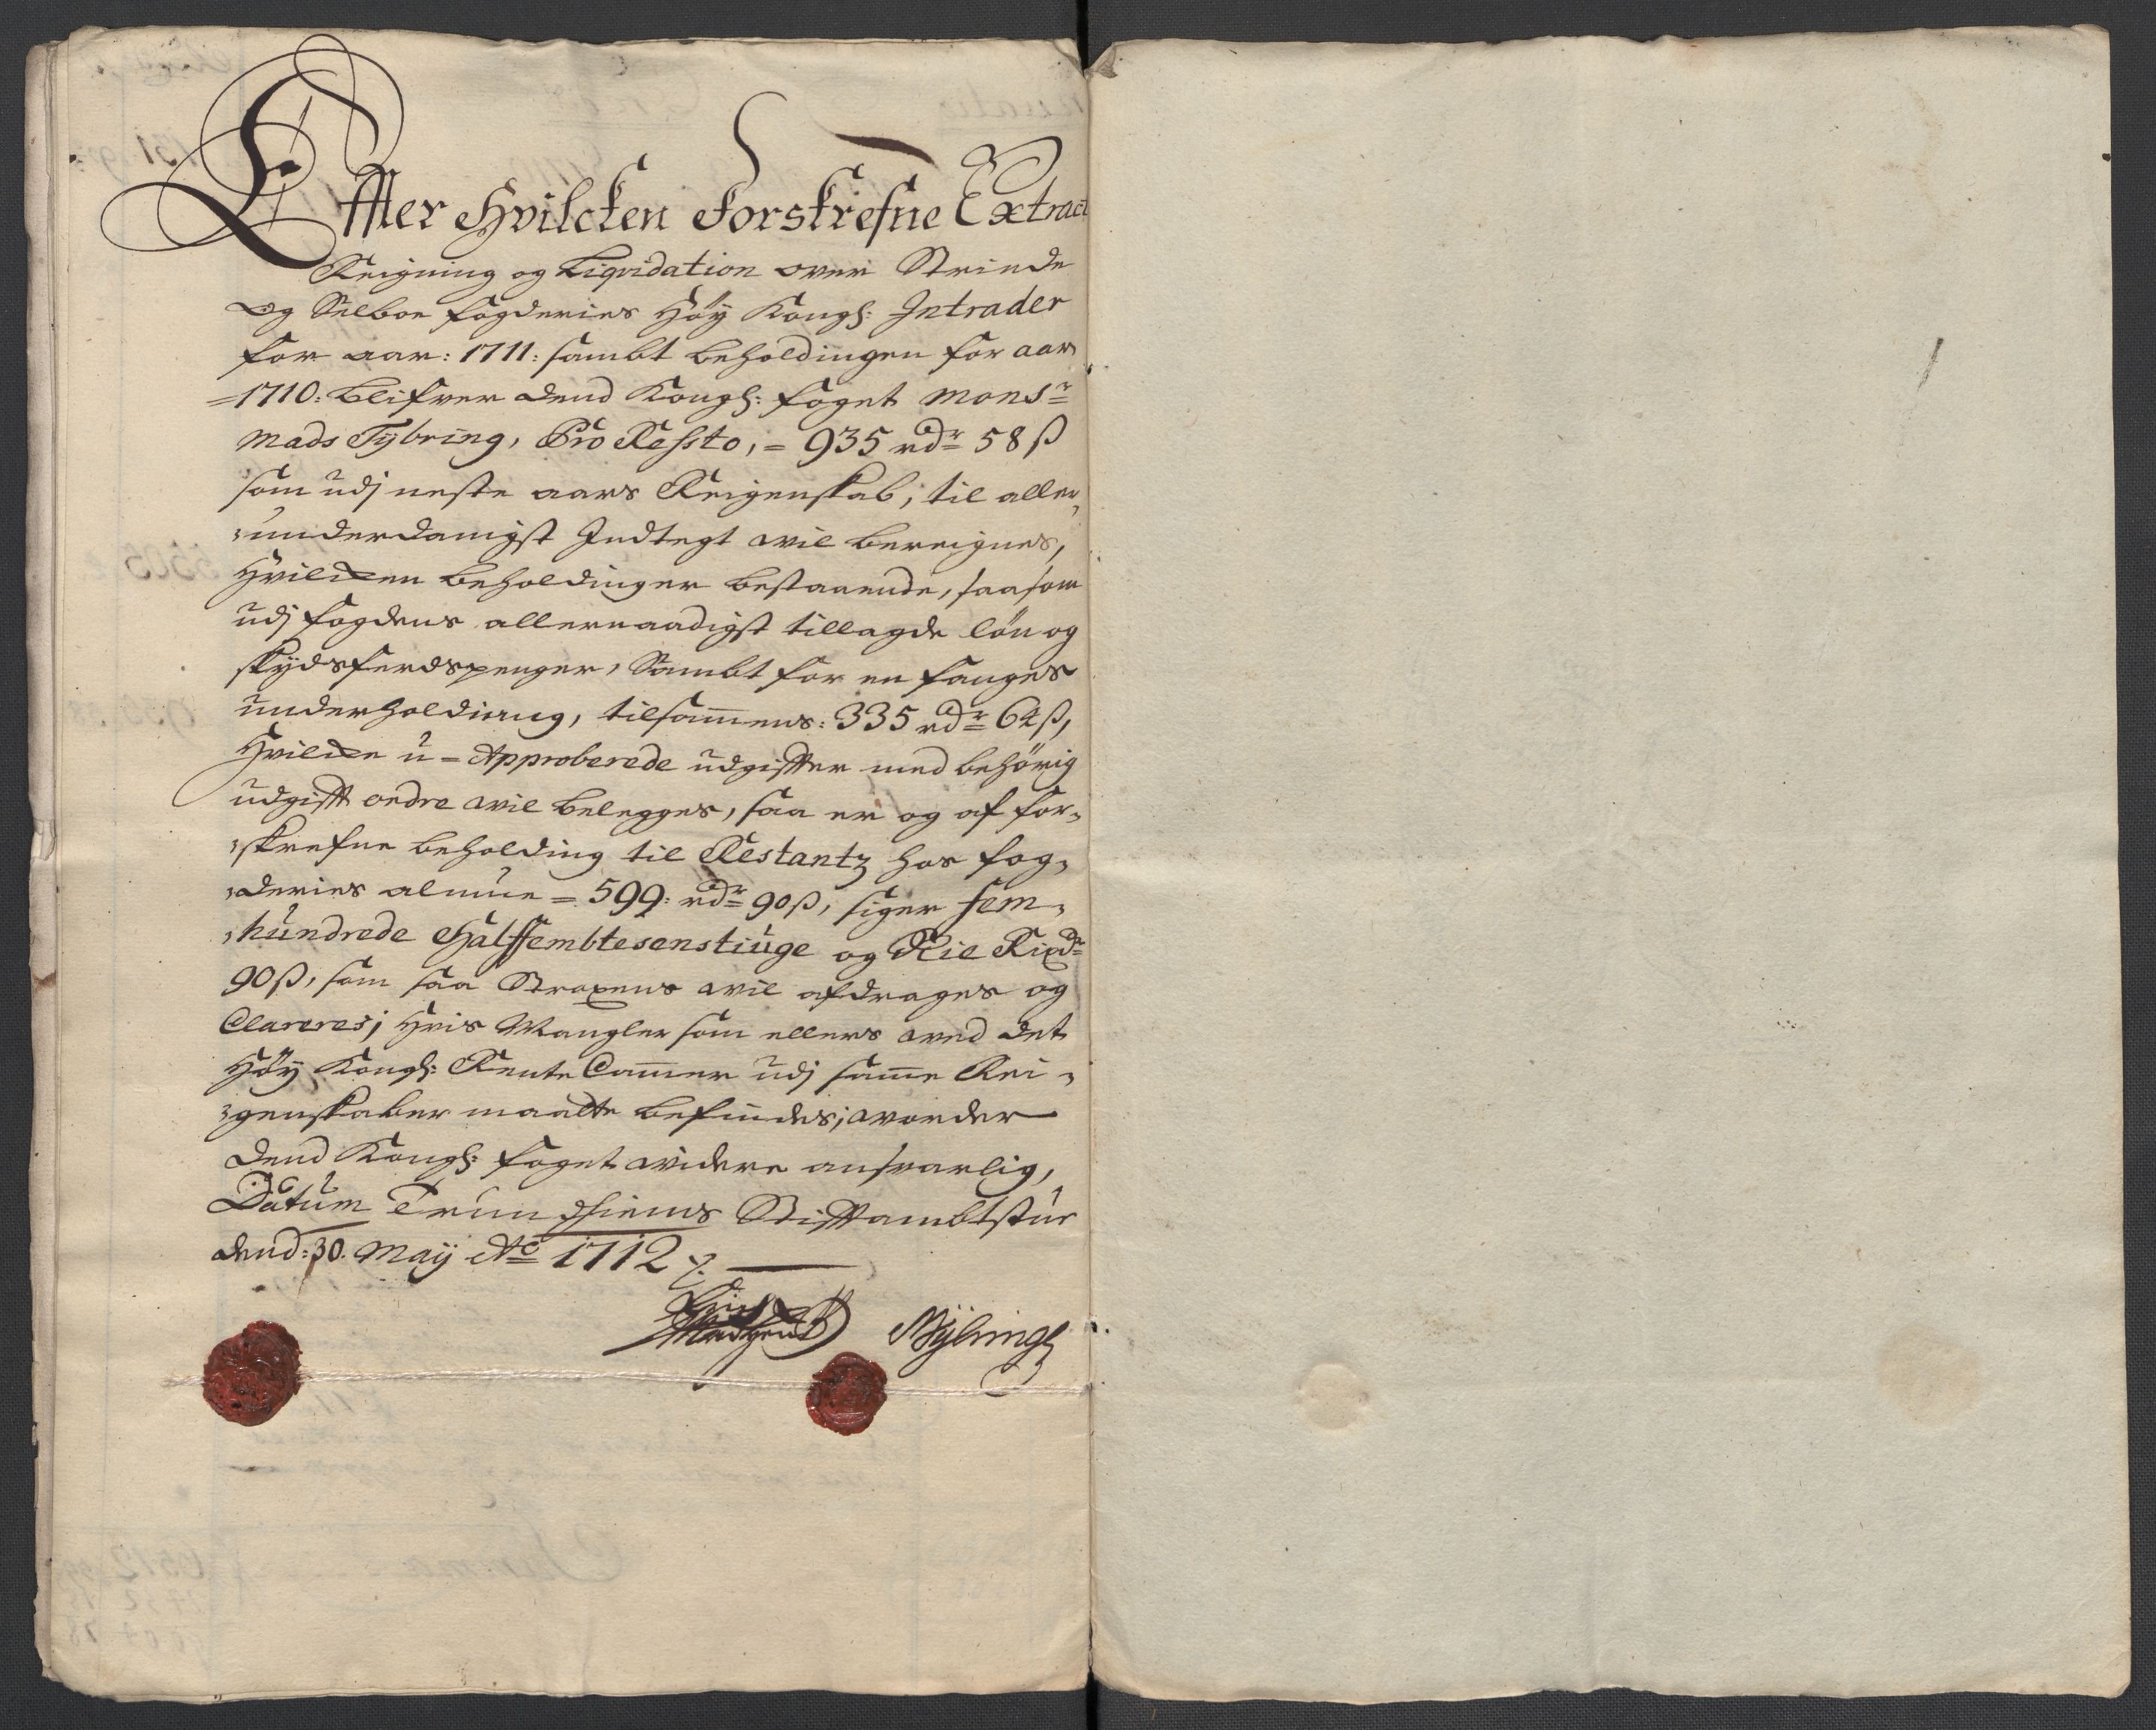 Effter Hvilcken Forskrefne Extract
Reigning og Liqvidation over Strinde
og Selboe fogderies Höy Kongl: Intrader
for aar: 1711: sambt beholdingen for aar
=1710: blifver dend Kongl: foget Monsr
Mads Tybring, Pro Ressto, = 935 rdr 58 ß
som udj neste aars Reigenskab, til aller„
„underdanigst Indtegt vil bereignes,
Hvilcken beholdinger bestaaende, saasom
udj fogdens allernaadigst tillagde lön og
skydsferdspenger, Sambt for en fanges
underholdning, tilsammens: 335 rdr 64 ß,
Hvilcke u=Approberede udgiffter med behörig
udgifft ordre vil belegges, saa er og af for„
„skrefne beholding til Restantz hos fog„
„deries almue = 599: rdr 90 ß, siger fem„
„hundrede Halffembtesenstiuge og Nie Rixdr
90 ß, som saa Straxens vil afdrages og
Clareres; Hvis Mangler som ellers ved det
Höy Kongl: Rente Cammer udj samme Rei„
„genskaber maatte befindes; vorder
dend Kongl: foget videre ansvarlig,
Datum Trundhiems Stifftambtstue
dend: 30. Maij Ao 1712 ./.
MTybring